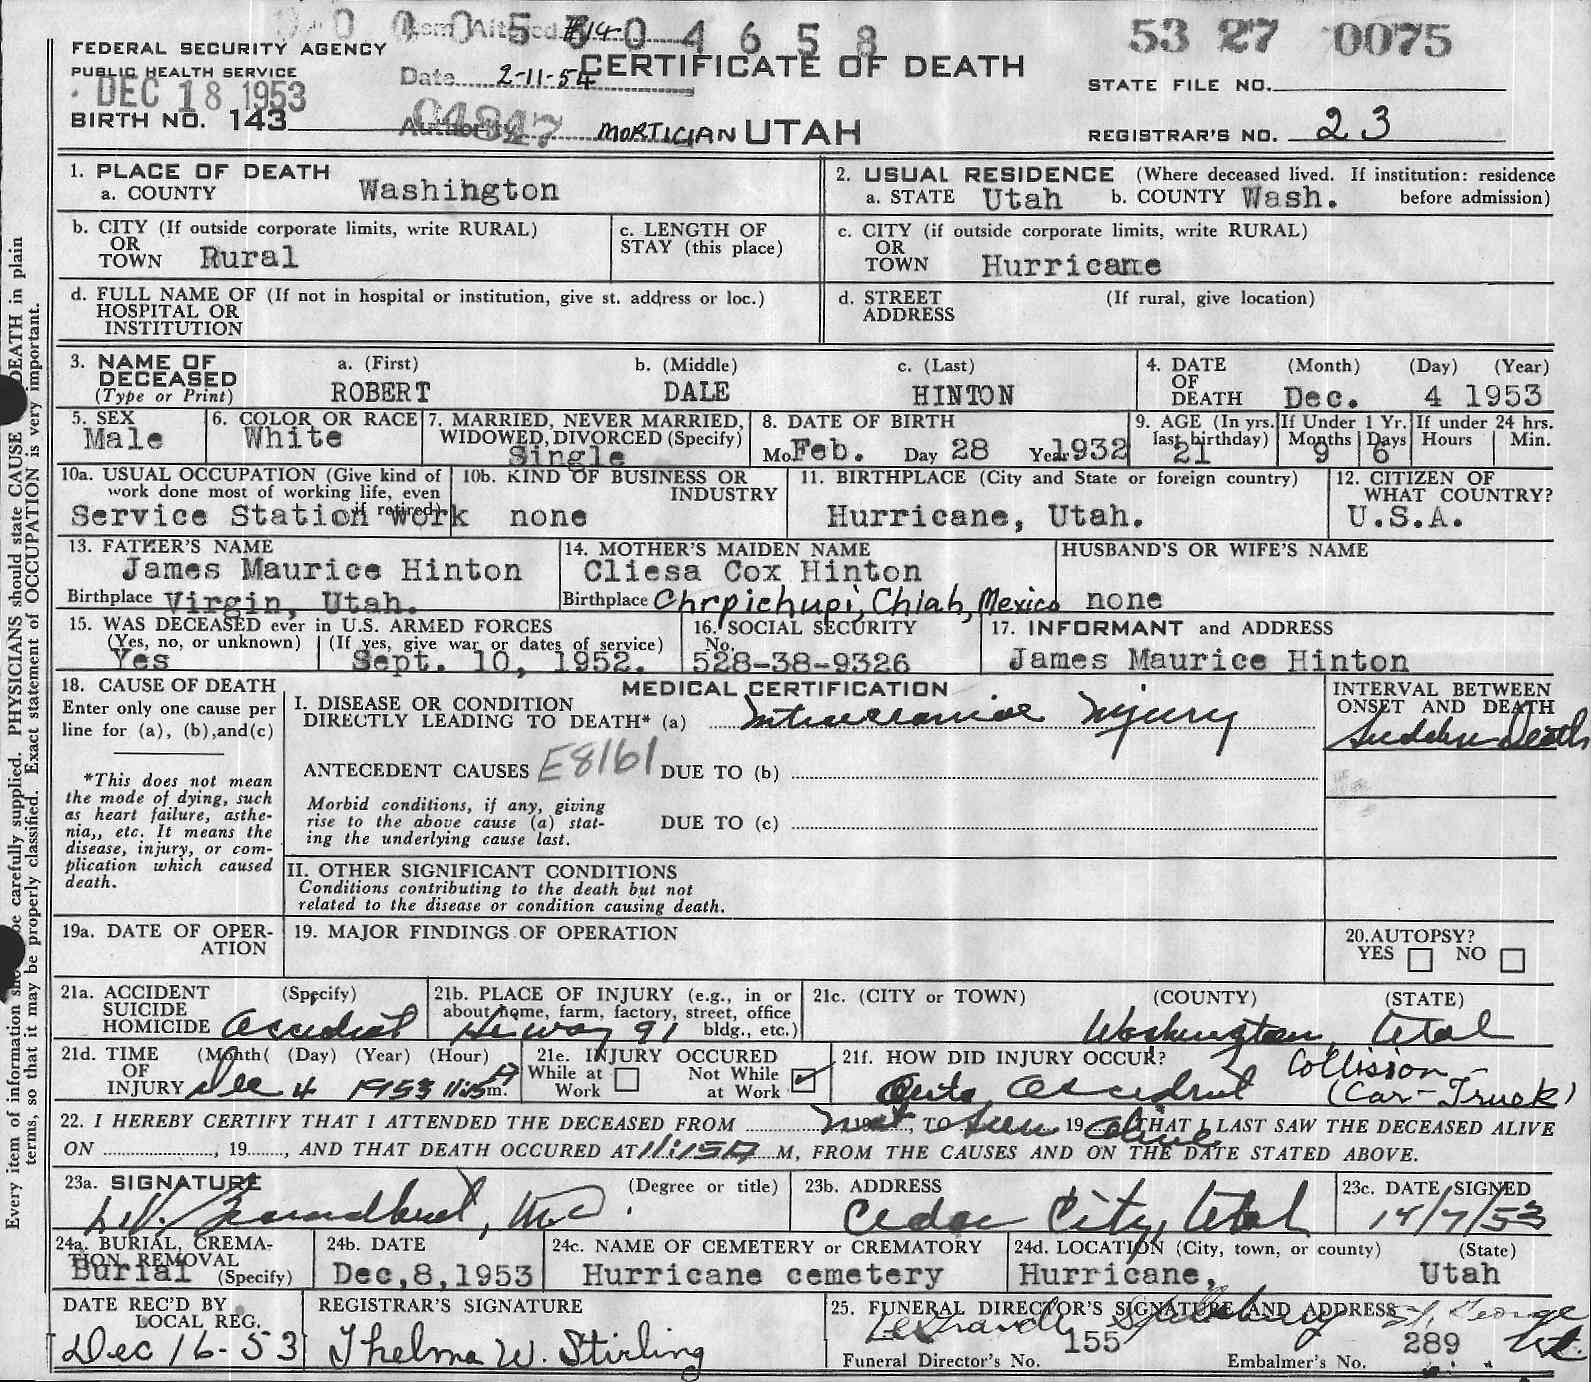 0 0 0 5 3 0 4 6 5 8
Item Altered #14
53 27 0075
FEDERAL SECURITY AGENCY
PUBLIC HEALTH SERVICE
DEC 18 1953
Date 2-11-54
CERTIFICATE OF DEATH
STATE FILE NO.
BIRTH NO. 143
Authority MORTICIAN UTAH
REGISTRAR'S NO. 23
1. PLACE OF DEATH
a. COUNTY Washington
2. USUAL RESIDENCE (Where deceased lived. If institution: residence before admission)
a. STATE Utah b. COUNTY Wash.
b. CITY (If outside corporate limits, write RURAL)
OR
TOWN Rural
c. LENGTH OF
STAY (this place)
c. CITY (if outside corporate limits, write RURAL)
OR
TOWN Hurricane
d. FULL NAME OF (If not in hospital or institution, give st. address or loc.)
HOSPITAL OR
INSTITUTION
d. STREET (If rural, give location)
ADDRESS
3. NAME OF
DECEASED
(Type or Print)
a. (First) b. (Middle) c. (Last)
ROBERT DALE HINTON
4. DATE (Month) (Day) (Year)
OF
DEATH Dec. 4 1953
5. SEX
Male
6. COLOR OR RACE
White
7. MARRIED, NEVER MARRIED,
WIDOWED, DIVORCED (Specify)
Single
8. DATE OF BIRTH
Mo. Feb. Day 28 Year 1932
9. AGE (In yrs. last birthday) 21
If Under 1 Yr. Months 9 Days 6
If under 24 hrs. Hours Min.
10a. USUAL OCCUPATION (Give kind of
work done most of working life, even
if retired)
Service Station work
10b. KIND OF BUSINESS OR
INDUSTRY
none
11. BIRTHPLACE (City and State or foreign country)
Hurricane, Utah.
12. CITIZEN OF
WHAT COUNTRY?
U.S.A.
13. FATHER'S NAME
James Maurice Hinton
Birthplace Virgin, Utah.
14. MOTHER'S MAIDEN NAME
Cliesa Cox Hinton
Birthplace Chrpichupi, Chiah, Mexico
HUSBAND'S OR WIFE'S NAME
none
15. WAS DECEASED ever in U.S. ARMED FORCES
(Yes, no, or unknown) (If yes, give war or dates of service)
Yes Sept. 10, 1952.
16. SOCIAL SECURITY
No.
528-38-9326
17. INFORMANT and ADDRESS
James Maurice Hinton
18. CAUSE OF DEATH
Enter only one cause per
line for (a), (b), and (c)
*This does not mean
the mode of dying, such
as heart failure, asthe-
nia,, etc. It means the
disease, injury, or com-
plication which caused
death.
MEDICAL CERTIFICATION
I. DISEASE OR CONDITION
DIRECTLY LEADING TO DEATH* (a) Intracranial Injury
ANTECEDENT CAUSES E8161 DUE TO (b)
Morbid conditions, if any, giving
rise to the above cause (a) stat-
ing the underlying cause last.
DUE TO (c)
II. OTHER SIGNIFICANT CONDITIONS
Conditions contributing to the death but not
related to the disease or condition causing death.
INTERVAL BETWEEN
ONSET AND DEATH
Sudden Death
19a. DATE OF OPER-
ATION
19. MAJOR FINDINGS OF OPERATION
20. AUTOPSY?
YES NO
21a. ACCIDENT (Specify)
SUICIDE
HOMICIDE Accident
21b. PLACE OF INJURY (e.g., in or
about home, farm, factory, street, office
bldg., etc.)
Hiway 91
21c. (CITY or TOWN) (COUNTY) (STATE)
Washington, Utah
21d. TIME (Month) (Day) (Year) (Hour)
OF
INJURY Dec 4 1953 11:15 P m.
21e. INJURY OCCURED
While at Work
Not While at Work ✓
21f. HOW DID INJURY OCCUR?
Auto Accident Collision -
(Car-Truck)
22. I HEREBY CERTIFY THAT I ATTENDED THE DECEASED FROM not, TO seen 19 alive THAT I LAST SAW THE DECEASED ALIVE
ON , 19 , AND THAT DEATH OCCURED AT 11:15P M, FROM THE CAUSES AND ON THE DATE STATED ABOVE.
23a. SIGNATURE (Degree or title)
23b. ADDRESS
Cedar City, Utah
23c. DATE SIGNED
24a. BURIAL, CREMA-
TION, REMOVAL
(Specify)
Burial
24b. DATE
Dec, 8, 1953
24c. NAME OF CEMETERY OR CREMATORY
Hurricane cemetery
24d. LOCATION (City, town, or county) (State)
Hurricane, Utah
DATE REC'D BY
LOCAL REG.
Dec 16-53
REGISTRAR'S SIGNATURE
Thelma W. Stirling
25. FUNERAL DIRECTOR'S SIGNATURE AND ADDRESS
Spilsbury St. George Ut.
Funeral Director's No. 155 Embalmer's No. 289
Every item of information should be carefully supplied. PHYSICIANS should state CAUSE OF DEATH in plain
terms, so that it may be properly classified. Exact statement of OCCUPATION is very important.